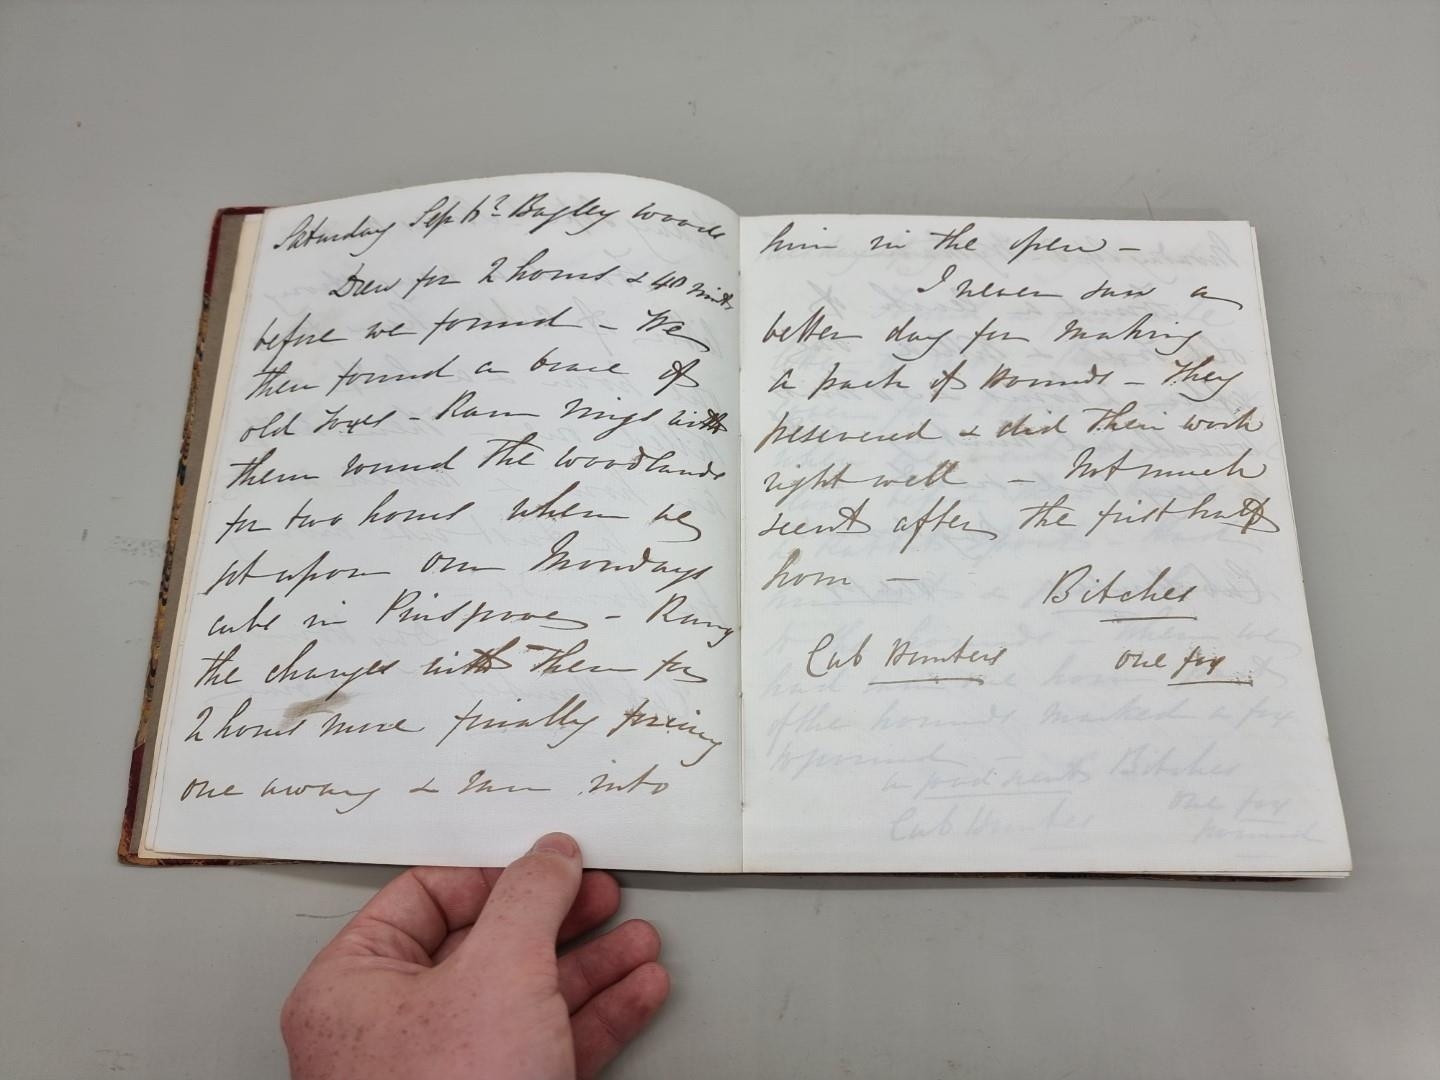 Saturday Sep 6th Bagley woods
Drew for 2 hours & 40 mints
before we found - We
then found a brace of
old foxes - Ran rings with
them round the woodlands
for two hours when we
got upon our Mondays
cubs in Pinsgrove - Rang
the changes with them for
2 hours more finally forcing
one away & ran into
him in the open -
I never saw a
better day for making
a pack of Hounds - They
persevered & did their work
right well - Not much
scent after the first half
hour -
Bitches
Cub Hunters one fox